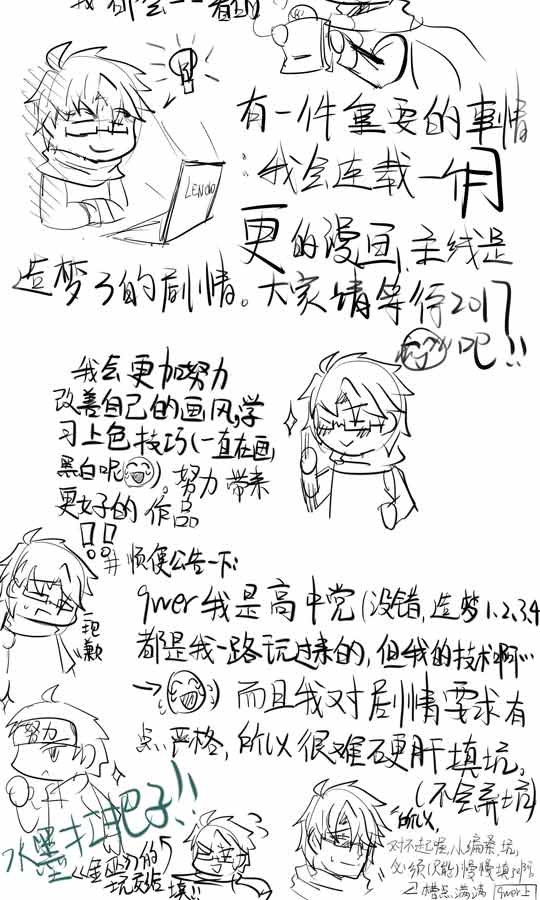 我都会一一看的
有一件重要的事情
:我会连载一个月
更的漫画,主线是
造梦3的剧情。大家请等待2017
吧!!
LENOVO
我会更加努力
改善自己的画风,学
习上色技巧(一直在画
黑白呢)。努力带来
更好的作品
!!
#顺便公告一下:
qwer我是高中党(没错,造梦1.2.3.4
都是我一路玩过来的,但我的技术啊…
→)而且我对剧情要求有
点严格,所以很难硬肝填坑。
(不会弃坑)
抱歉
努力
水墨扛把子!!
的
填!!
所以,
对不起喔
必须(只能)慢慢填
槽点满满
qwer上